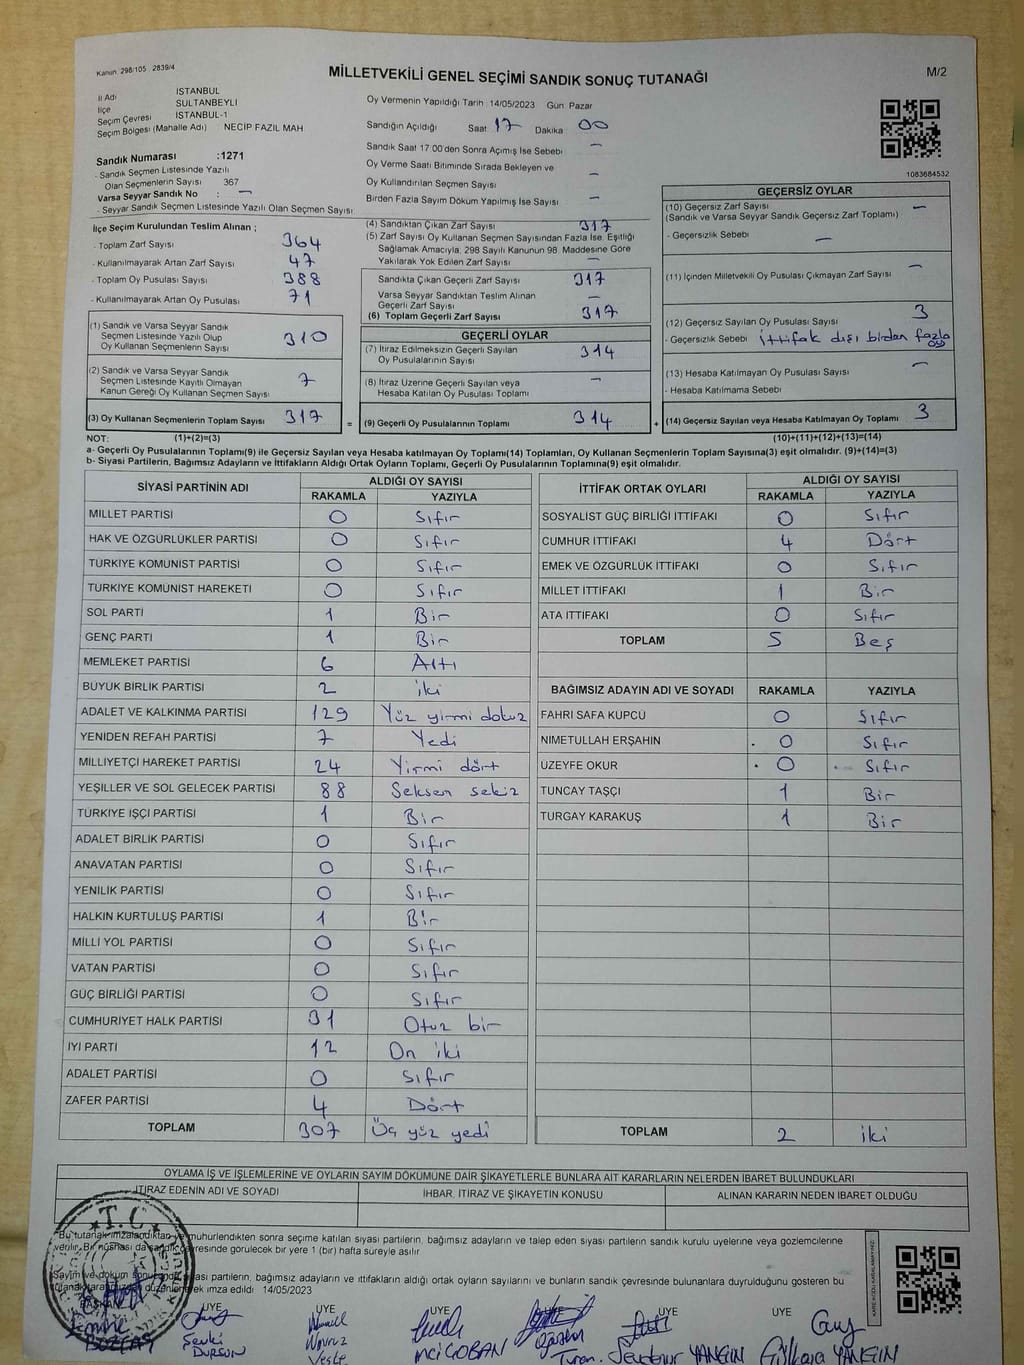 Kanun 298/105 2839/4
MİLLETVEKİLİ GENEL SEÇİMİ SANDIK SONUÇ TUTANAĞI
M/2
İl Adı İSTANBUL
İlçe SULTANBEYLİ
Seçim Çevresi İSTANBUL-1
Seçim Bölgesi (Mahalle Adı) NECİP FAZIL MAH
Sandık Numarası :1271
- Sandık Seçmen Listesinde Yazılı
Olan Seçmenlerin Sayısı 367
Varsa Seyyar Sandık No : —
- Seyyar Sandık Seçmen Listesinde Yazılı Olan Seçmen Sayısı
Oy Vermenin Yapıldığı Tarih 14/05/2023 Gün Pazar
Sandığın Açıldığı Saat 17 Dakika 00
Sandık Saat 17:00'den Sonra Açımış İse Sebebi —
Oy Verme Saati Bitiminde Sırada Bekleyen ve
Oy Kullandırılan Seçmen Sayısı —
Birden Fazla Sayım Döküm Yapılmış İse Sayısı —
1083684532
İlçe Seçim Kurulundan Teslim Alınan ;
- Toplam Zarf Sayısı 364
- Kullanılmayarak Artan Zarf Sayısı 47
- Toplam Oy Pusulası 388
- Kullanılmayarak Artan Oy Pusulası 71
(1) Sandık ve Varsa Seyyar Sandık
Seçmen Listesinde Yazılı Olup
Oy Kullanan Seçmenlerin Sayısı 310
(2) Sandık ve Varsa Seyyar Sandık
Seçmen Listesinde Kayıtlı Olmayan
Kanun Gereği Oy Kullanan Seçmen Sayısı 7
(3) Oy Kullanan Seçmenlerin Toplam Sayısı 317
(4) Sandıktan Çıkan Zarf Sayısı 317
(5) Zarf Sayısı Oy Kullanan Seçmen Sayısından Fazla İse, Eşitliği
Sağlamak Amacıyla, 298 Sayılı Kanunun 98. Maddesine Göre
Yakılarak Yok Edilen Zarf Sayısı —
Sandıkta Çıkan Geçerli Zarf Sayısı 317
Varsa Seyyar Sandıktan Teslim Alınan
Geçerli Zarf Sayısı —
(6) Toplam Geçerli Zarf Sayısı 317
GEÇERLİ OYLAR
(7) İtiraz Edilmeksizin Geçerli Sayılan
Oy Pusulalarının Sayısı 314
(8) İtiraz Üzerine Geçerli Sayılan veya
Hesaba Katılan Oy Pusulaları Toplamı —
= (9) Geçerli Oy Pusulalarının Toplamı 314
GEÇERSİZ OYLAR
(10) Geçersiz Zarf Sayısı —
(Sandık ve Varsa Seyyar Sandık Geçersiz Zarf Toplamı)
- Geçersizlik Sebebi —
(11) İçinden Milletvekili Oy Pusulası Çıkmayan Zarf Sayısı —
(12) Geçersiz Sayılan Oy Pusulası Sayısı 3
- Geçersizlik Sebebi ittifak dışı birden fazla oy
(13) Hesaba Katılmayan Oy Pusulası Sayısı —
- Hesaba Katılmama Sebebi
+ (14) Geçersiz Sayılan veya Hesaba Katılmayan Oy Toplamı 3
NOT: (1)+(2)=(3) (10)+(11)+(12)+(13)=(14)
a- Geçerli Oy Pusulalarının Toplamı(9) ile Geçersiz Sayılan veya Hesaba katılmayan Oy Toplamı(14) Toplamları, Oy Kullanan Seçmenlerin Toplam Sayısına(3) eşit olmalıdır. (9)+(14)=(3)
b- Siyasi Partilerin, Bağımsız Adayların ve İttifakların Aldığı Ortak Oyların Toplamı, Geçerli Oy Pusulalarının Toplamına(9) eşit olmalıdır.
SİYASİ PARTİNİN ADI ALDIĞI OY SAYISI
RAKAMLA YAZIYLA
MİLLET PARTİSİ 0 Sıfır
HAK VE ÖZGÜRLÜKLER PARTİSİ 0 Sıfır
TÜRKİYE KOMÜNİST PARTİSİ 0 Sıfır
TÜRKİYE KOMÜNİST HAREKETİ 0 Sıfır
SOL PARTİ 1 Bir
GENÇ PARTİ 1 Bir
MEMLEKET PARTİSİ 6 Altı
BÜYÜK BİRLİK PARTİSİ 2 iki
ADALET VE KALKINMA PARTİSİ 129 Yüz yirmi dokuz
YENİDEN REFAH PARTİSİ 7 Yedi
MİLLİYETÇİ HAREKET PARTİSİ 24 Yirmi dört
YEŞİLLER VE SOL GELECEK PARTİSİ 88 Seksen sekiz
TÜRKİYE İŞÇİ PARTİSİ 1 Bir
ADALET BİRLİK PARTİSİ 0 Sıfır
ANAVATAN PARTİSİ 0 Sıfır
YENİLİK PARTİSİ 0 Sıfır
HALKIN KURTULUŞ PARTİSİ 1 Bir
MİLLİ YOL PARTİSİ 0 Sıfır
VATAN PARTİSİ 0 Sıfır
GÜÇ BİRLİĞİ PARTİSİ 0 Sıfır
CUMHURİYET HALK PARTİSİ 31 Otuz bir
İYİ PARTİ 12 On iki
ADALET PARTİSİ 0 Sıfır
ZAFER PARTİSİ 4 Dört
TOPLAM 307 Üç yüz yedi
İTTİFAK ORTAK OYLARI ALDIĞI OY SAYISI
RAKAMLA YAZIYLA
SOSYALİST GÜÇ BİRLİĞİ İTTİFAKI 0 Sıfır
CUMHUR İTTİFAKI 4 Dört
EMEK VE ÖZGÜRLÜK İTTİFAKI 0 Sıfır
MİLLET İTTİFAKI 1 Bir
ATA İTTİFAKI 0 Sıfır
TOPLAM 5 Beş
BAĞIMSIZ ADAYIN ADI VE SOYADI RAKAMLA YAZIYLA
FAHRİ SAFA KÜPCÜ 0 Sıfır
NİMETULLAH ERŞAHİN 0 Sıfır
ÜZEYFE OKUR 0 Sıfır
TUNCAY TAŞÇI 1 Bir
TURGAY KARAKUŞ 1 Bir
TOPLAM 2 iki
OYLAMA İŞ VE İŞLEMLERİNE VE OYLARIN SAYIM DÖKÜMÜNE DAİR ŞİKAYETLERLE BUNLARA AİT KARARLARIN NELERDEN İBARET BULUNDUKLARI
İTİRAZ EDENİN ADI VE SOYADI İHBAR, İTİRAZ VE ŞİKAYETİN KONUSU ALINAN KARARIN NEDEN İBARET OLDUĞU
T.C.
Bu tutanak imzalandıktan ve mühürlendikten sonra seçime katılan siyasi partilerin, bağımsız adayların ve talep eden siyasi partilerin sandık kurulu üyelerine veya gözlemcilerine
verilir. Bir nüshası da sandık çevresinde görülecek bir yere 1 (bir) hafta süreyle asılır.
Sayım ve döküm siyasi partilerin, bağımsız adayların ve ittifakların aldığı ortak oyların sayılarını ve bunların sandık çevresinde bulunanlara duyrulduğunu gösteren bu
imza edildi 14/05/2023
BAŞKAN ÜYE ÜYE ÜYE ÜYE ÜYE
Emine BOZTAŞ
Şevki DURSUN
İnci ÇOBAN
YANGIN
YANGIN